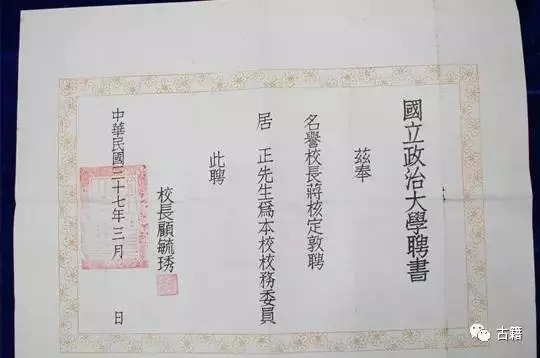 國立政治大學聘書
茲奉
名譽校長蔣核定敦聘
居 正先生爲本校校務委員
此聘
校長顧毓琇
中華民國三十七年三月 日
古籍